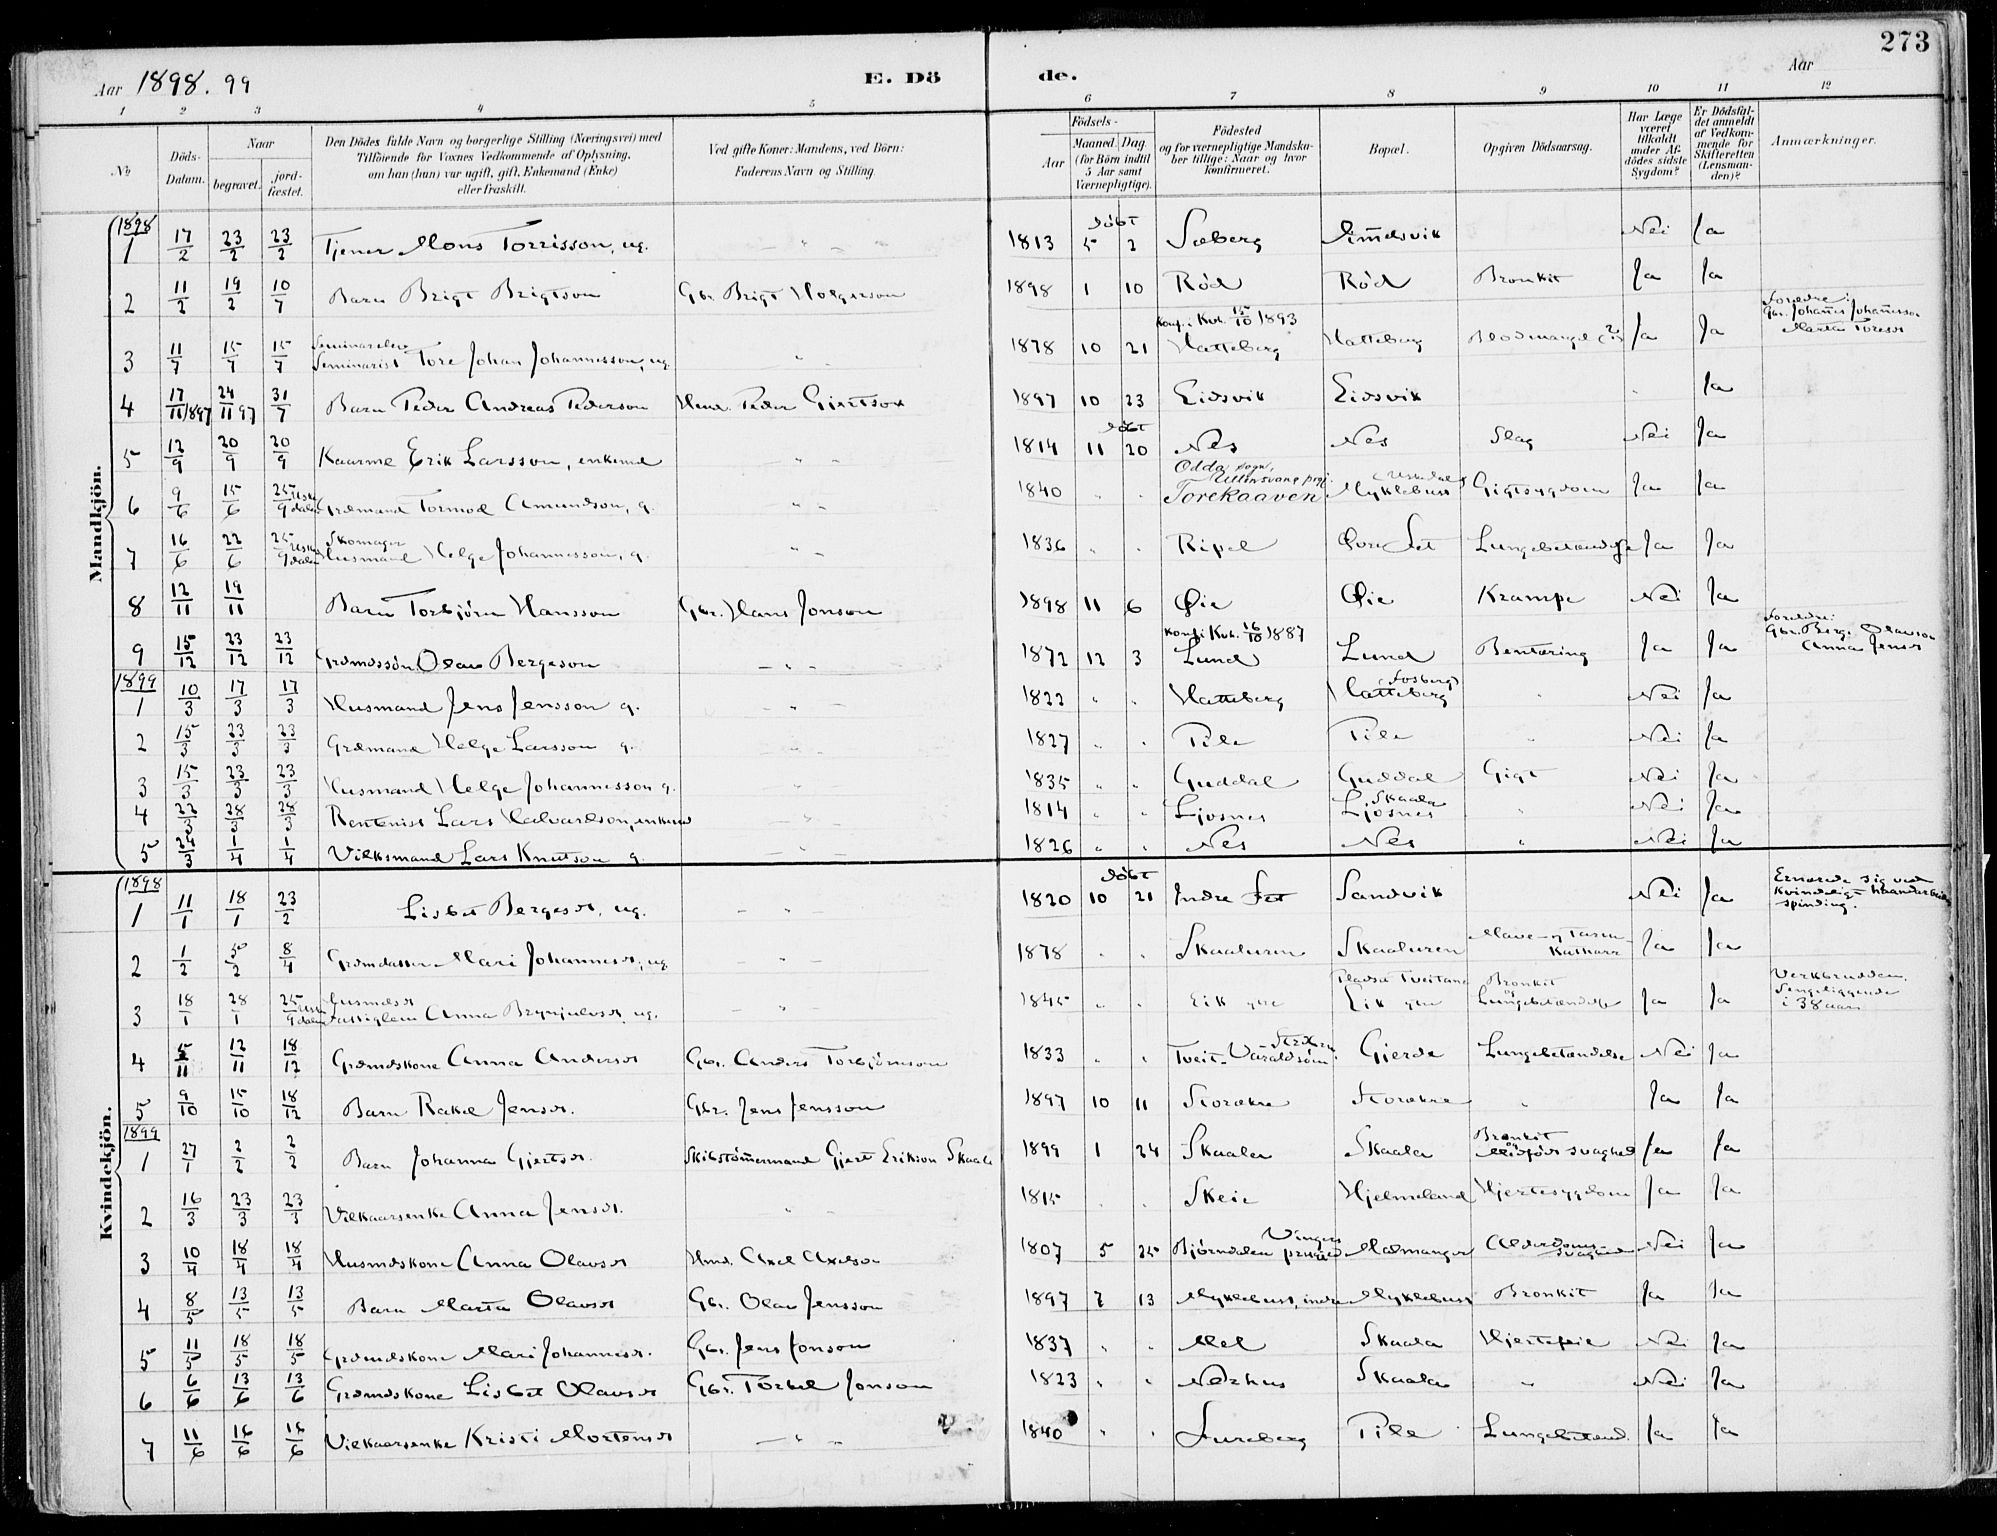 273
Aar 1898. 99
E. Dö de.
Aar
1 2 3 4 5 6 7 8 9 10 11 12
No
Döds-Datum.
Naar begravet. jord-fæstet.
Den Dödes fulde Navn og borgerlige Stilling (Næringsvei) med Tilföiende for Voxnes Vedkommende af Oplysning, om han (hun) var ugift, gift, Enkemand (Enke) eller fraskilt.
Ved gifte Koner: Mandens, ved Börn: Faderens Navn og Stilling.
Födsels-
Aar Maaned. Dag. (for Börn indtil 5 Aar samt Værnepligtige).
Födested og for værnepligtige Mandskaber tillige: Naar og hvor konfirmeret.
Bopæl.
Opgiven Dödsaarsag.
Har Læge været tilkaldt under Afdödes sidste Sygdom?
Er Dödsfaldet anmeldt af Vedkommende for Skifteretten (Lensmanden)?
Anmærkninger.
Mandkjön.
1898
1 17/2 23/2 23/2 Tjener Mons Torrisson, ug. 1813 döbt 5 2 Sæberg Nei Ja
2 11/2 19/2 10/7 Barn Brigt Brigtson Gbr. Brigt Holgerson 1898 1 10 Röd Röd Bronkit Ja Ja
3 11/7 15/7 15/7 Seminarist Tore Johan Johannesson, ug. 1878 10 21 Konf. i Kvh. 15/10 1893 Hatteberg Hatteberg Blodmangel (?) Ja Ja Foreldre: Gbr. Johannes Johannesson Marta Toresdr
4 17/11 1897 24/11 97 31/7 Barn Peder Andreas Pederson Hmd. Peder Gjertson 1897 10 23 Eidsvik Eidsvik Ja
5 12/9 20/9 20/9 Kaarme Erik Larsson, enkemd 1814 döbt 11 20 Nes Nes Slag Nei Ja
6 9/6 15/6 25/9 Uskedalen Grdmand Tormod Amundson, g. 1840 Odda sogn, Ullensvang prgj. Torekaaven Myklebust Uskedal Gigtsygdom Ja Ja
7 16/6 22/6 25/9 Uskedalen Skomager Husmand Helge Johannesson, g. 1836 Ripel Övre Sæt Lungebetændelse Ja Ja
8 12/11 19/11 Barn Torbjörn Hansson Gbr. Hans Jonson 1898 11 6 Öie Öie Krampe Nei Ja
9 15/12 23/12 23/12 Grdmdssön Olav Bergeson 1872 12 3 Konf. i Kvh. 16/10 1887 Lund Lund Bentæring Ja Ja Foreldre: Gbr. Berge Olavson Anna Jensdr
1899
1 10/3 17/3 17/3 Husmand Jens Jensson g. 1822 Hatteberg Hatteberg (Fosberg) Nei Ja
2 15/3 23/3 23/3 Grdmand Helge Larsson g. 1827 Pile Pile Nei Ja
3 15/3 23/3 23/3 Husmand Helge Johannesson g. 1835 Guddal Guddal Gigt Nei Ja
4 22/3 28/3 28/3 Rentenist Lars Halvardson, enkemd 1814 Ljosnes Ljosnes Skaala Nei Ja
5 1/4 1/4 Vilksmand Lars Knutson g. 1826 Nes Nes Nei Ja
Kvindekjön.
1898
1 11/1 18/1 23/2 Lisbet Bergesdr, ug. 1820 döbt 10 21 Indre Sæt Sandvik Nei Ja Ernærede sig ved kvindeligt haandarbeide, spinding.
2 1/2 5/2 8/4 Grdmdatter Mari Johannesdr, ug. 1878 Skaaluren Skaaluren Mave- og Tarm-Katharr Ja Ja
3 18/1 28/1 25/9 Uskedalen Husmdsdr Fattiglem Anna Brynjulvsdr, ug. 1845 Eik ytre Pladsen Tveitane Eik ytre Bronkit og Lungebetændelse Ja Ja Verkbrudden. Sengeliggende i 38 aar.
4 5/11 12/11 18/12 Grdmdskone Anna Andersdr Gbr. Anders Torbjörnson 1833 Tveit - Varaldsöen Gjerde Lungebetændelse Nei Ja
5 9/10 15/10 18/12 Barn Rakel Jensdr. Gbr. Jens Jensson 1897 10 11 Storekre Storekre Ja Ja
1899
1 27/1 2/2 2/2 Barn Johanna Gjertsdr. Skibstömmermand Gjert Erikson Skaala 1899 1 24 Skaala Skaala Bronkit og Medfödt svaghed Ja Ja
2 16/3 23/3 23/3 Vilkaarsenke Anna Jensdr. 1815 Skeie Hjelmeland Hjertesygdom Ja Ja
3 10/4 18/4 18/4 Husmdskone Anna Olavsdr Hmd. Axel Axelson 1807 5 25 Björndalen Malmanger Alderdomssvaghed Nei Ja
4 8/5 13/5 13/5 Barn Marta Olavsdr Gbr. Olav Jensson 1897 7 13 Myklebust, indre Myklebust Bronkit Ja Ja
5 11/5 18/5 18/5 Grdmdskone Mari Johannesdr. Gbr. Jens Jonson 1837 Mel Skaala Hjertefeil Nei Ja
6 6/6 13/6 13/6 Grdmdskone Lisbet Olavsdr Gbr. Torkel Jonson 1823 Nedrhus Skaala Nei Ja
7 11/6 16/6 16/6 Vilkaarsenke Kristi Mortensdr 1840 Fureberg Pile Lungebetænd. Ja Ja